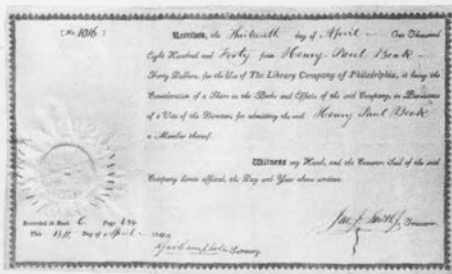 [No. 1016]
Received, the Thirteenth day of April One Thousand
Eight Hundred and Forty from Henry Paul Beck
Forty Dollars, for the Use of The Library Company of Philadelphia, it being the
Consideration of a Share in the Books and Effects of the said Company, in Pursuance
of a Vote of the Directors for admitting the said Henry Paul Beck
a Member thereof.
Witness my Hand, and the Common Seal of the said
Company hereto affixed, the Day and Year above written.
Recorded in Book C. Page
This 13th Day of April
Jno. J. Smith Jr. Treasurer
Secretary